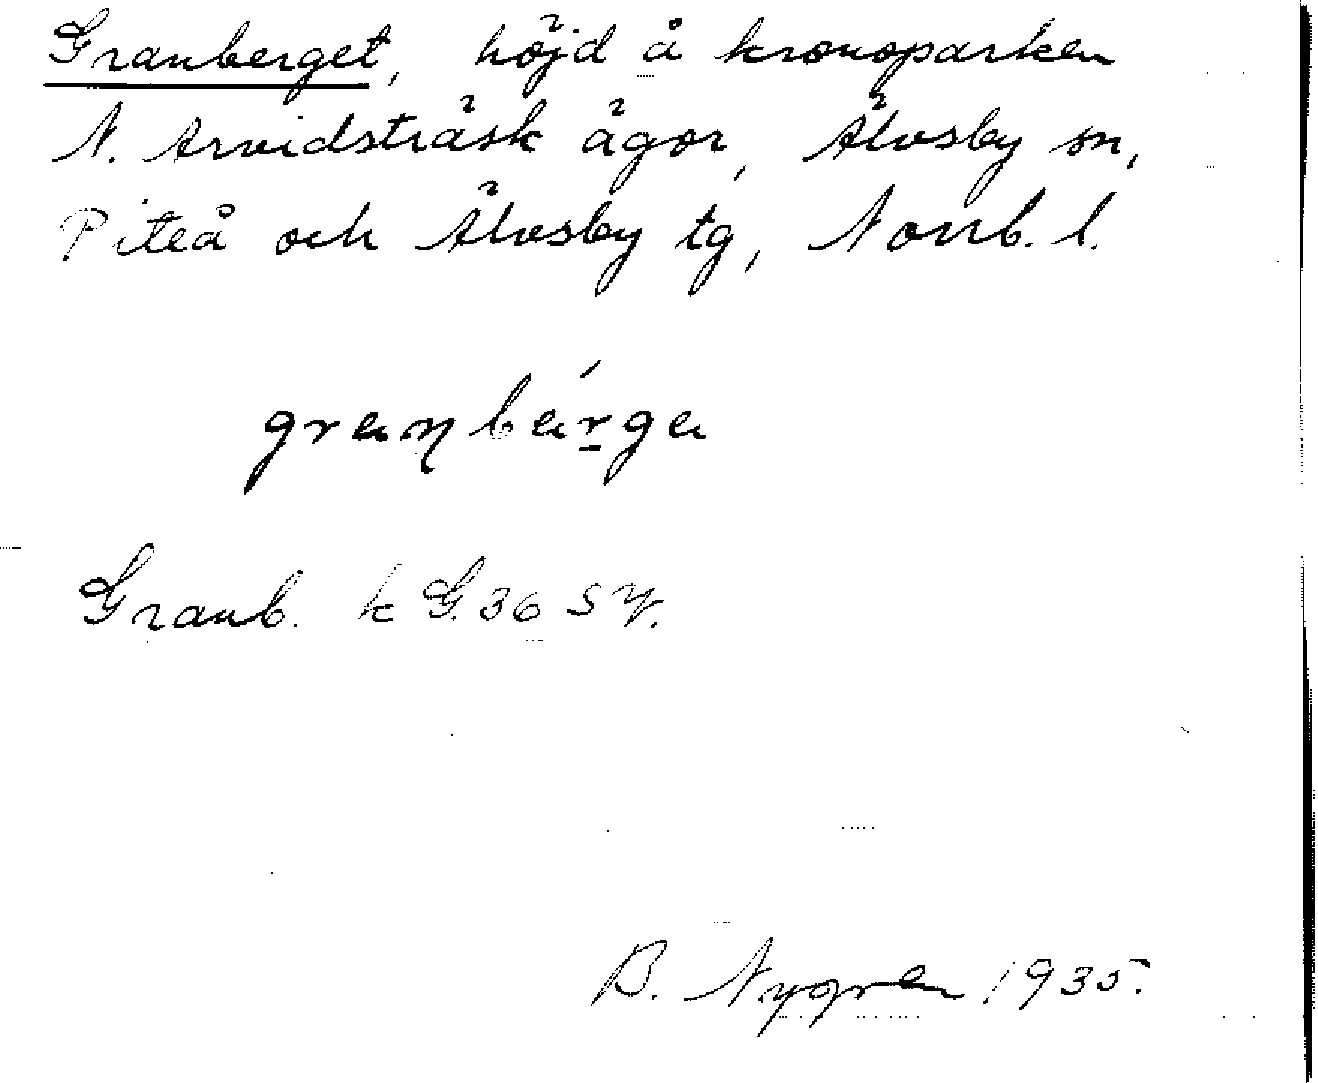 Granberget, höjd å kronoparken
N. Arvidsträsk ägor, Älvsby sn,
Piteå och Älvsby tg, Norrb. l.
Granb. k G.36 SV.
B. Nygren 1935.